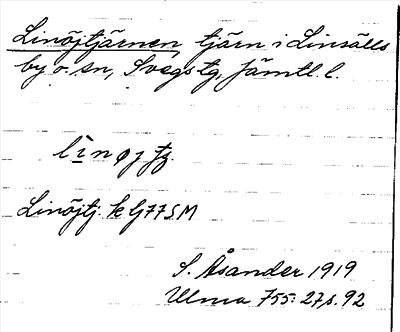 Linöjtjärnen, tjärn i Linsälls
by o. sn, Svegs tg, Jämtl. l.
lìnøj tz.
Linöjtj. k lj 77 SM
S. Åsander 1919
Ulma 755: 27 s. 92